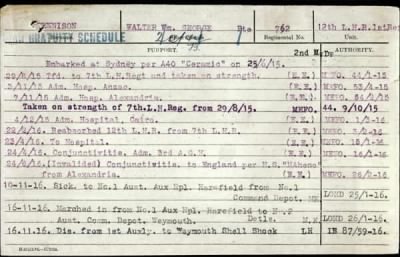 TENNISON WALTER Wm. GEORGE Pte 762 12th L.H.R. 1st Rei
GRATUITY SCHEDULE
PURPORT. Regimental No. AUTHORITY.
2nd M.Ds
Embarked at Sydney per A40 "Ceramic" on 25/6/15.
29/8/15 Tfd. to 7th L.H.Regt and taken on strength. (E.E.) MEFO. 44/1-15
3/11/15 Adm. Hosp. Anzac. (E.E.) MEFO. 53/4-15
7/11/15 Adm. Hosp. Alexandria. (E.E.) MEFO. 54/2-15
Taken on strength of 7th.L.H.Reg. from 29/8/15. MEFO. 44. 9/10/15.
4/12/15 Adm. Hospital, Cairo. (E.E.) MFO. 1/3-16
22/2/16. Reabsorbed 12th L.H.R. from 7th L.H.R. (E.E.) MFO. 3/2-16
23/4/16. To Hospital. (E.E.) MFO. 15/1-16
24/4/16. Conjunctivitis. Adm. 3rd A.G.H. (E.E.) MFO. 16/1-16
24/6/16. (Invalided) Conjunctivitis. to England per H.S. "Maheno"
from Alexandria. (E.E.) MFO. 26/2-16
10-11-16. Sick. to No.1 Aust Aux Hpl. Harefield from No.1
Command Depot. LOND 25/1-16.
16-11-16. Marched in from No.1 Aux Hpl. Harefield to No.2
Aust. Comm. Depot, Weymouth. LOND 26/1-16.
16.11.16. Dis. from 1st Auxly. to Weymouth Shell Shock LH IR 87/59-16.